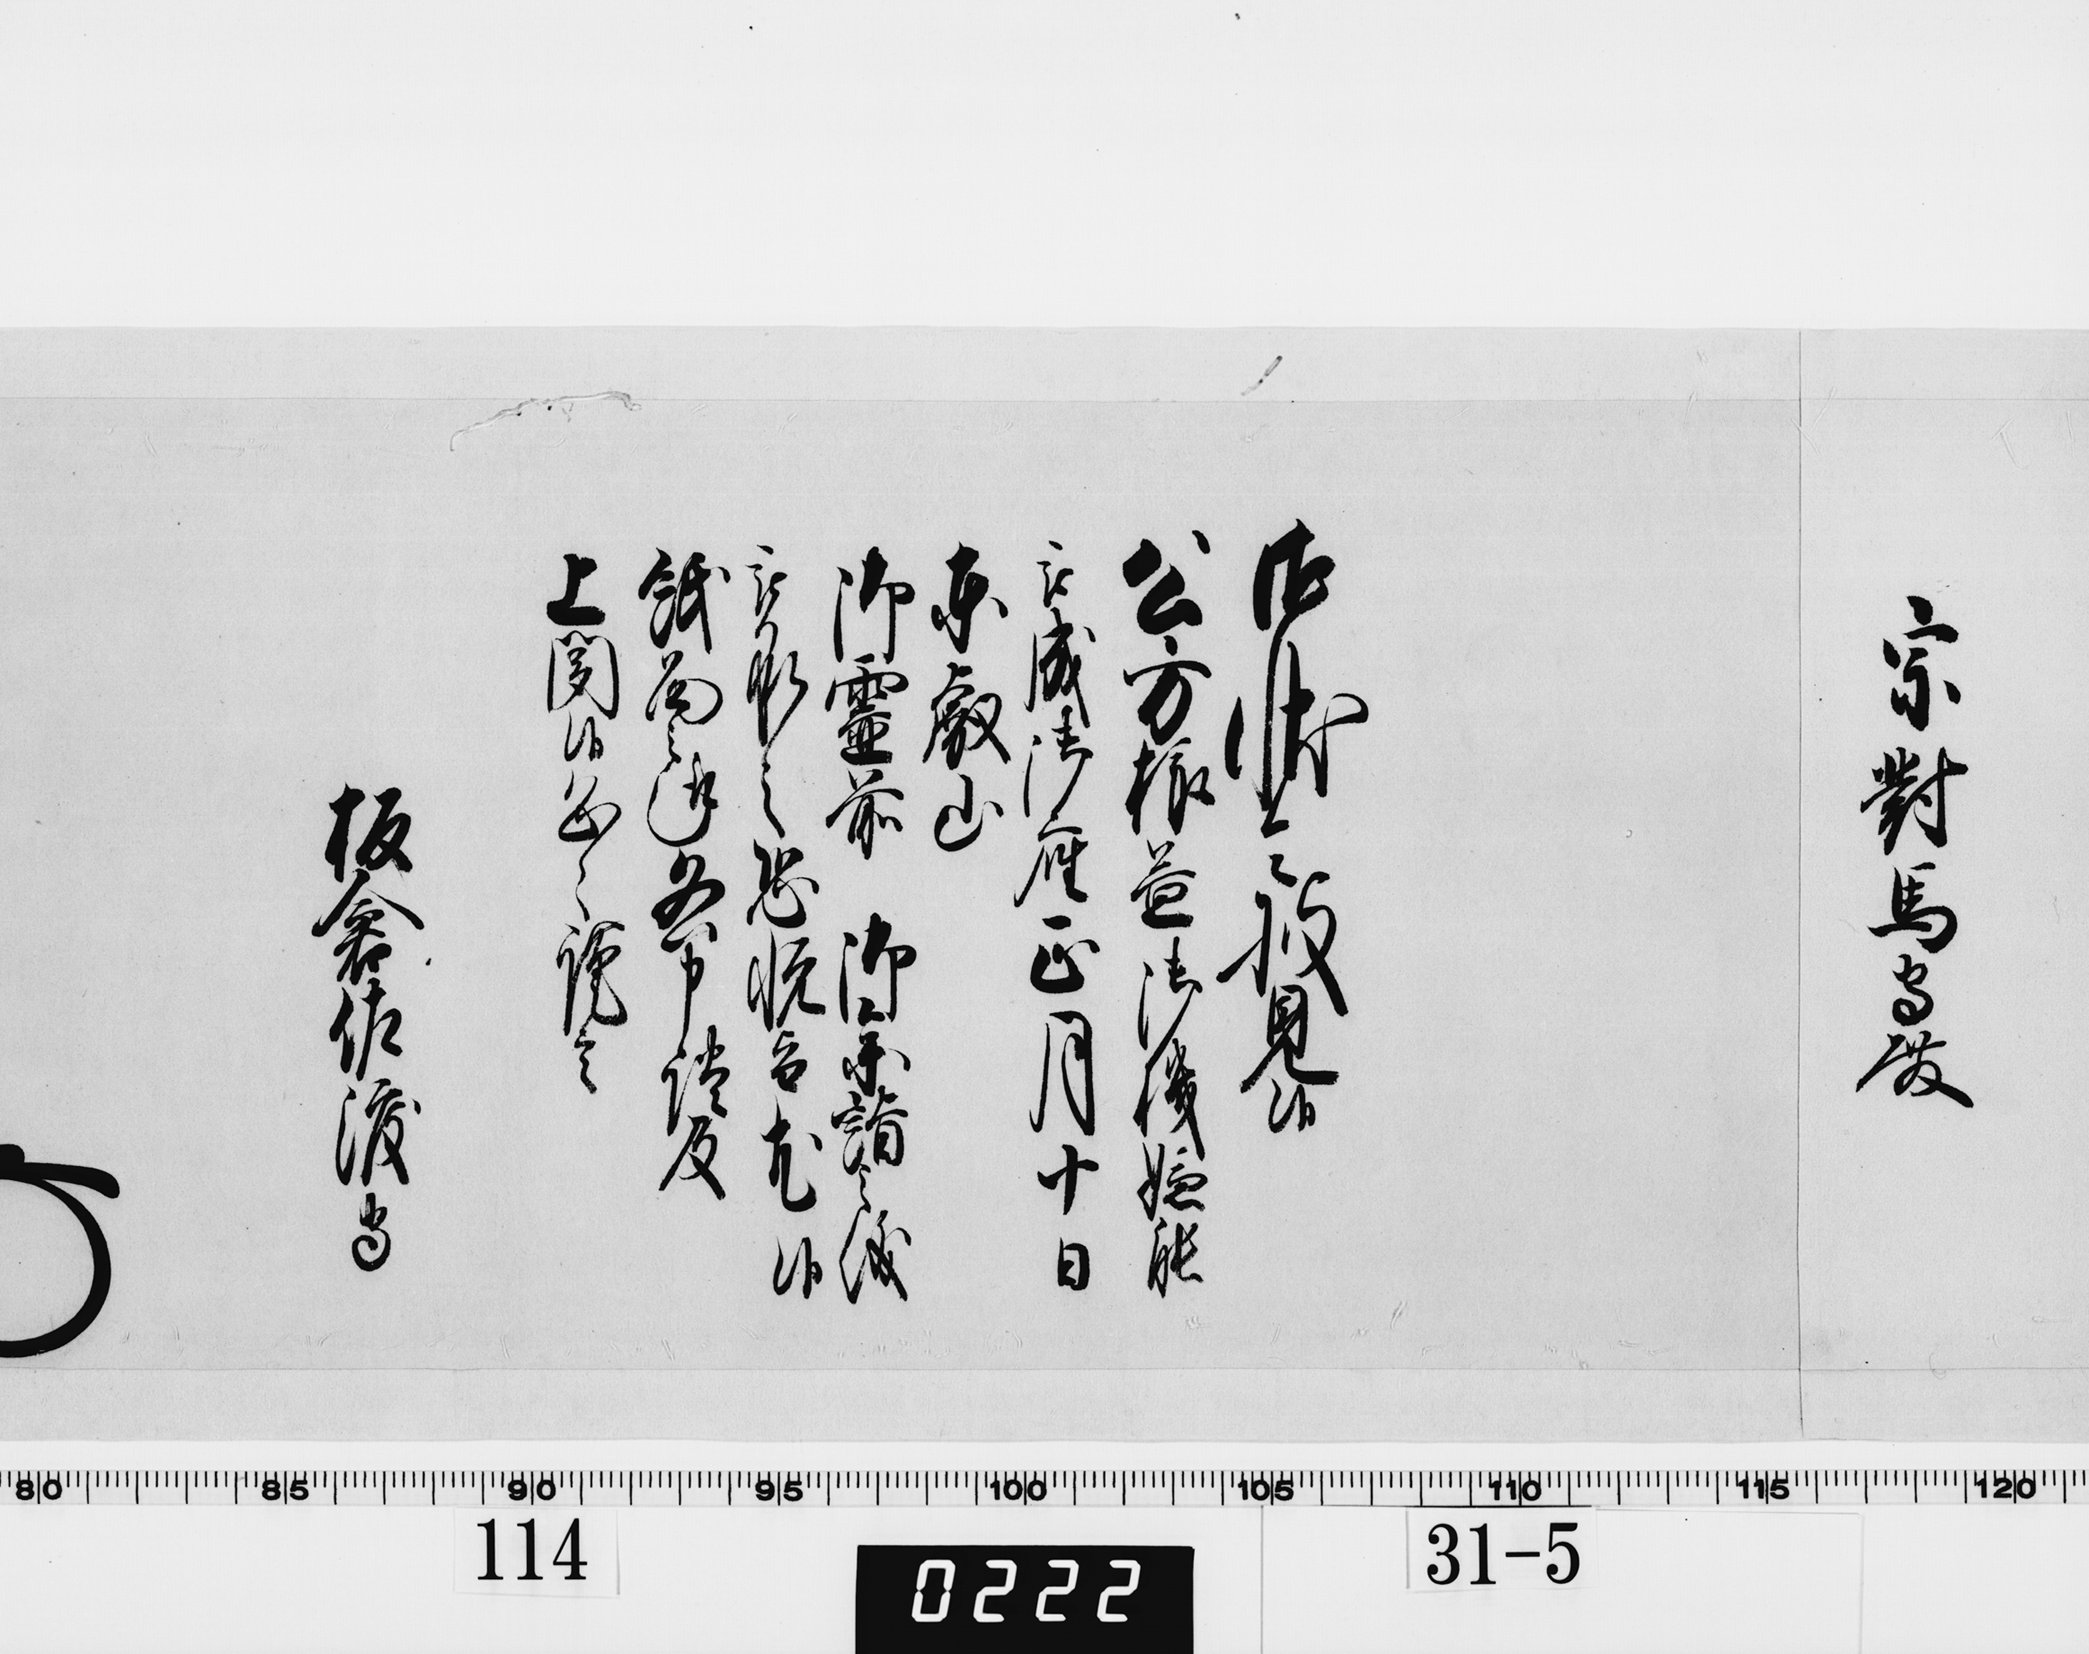 宗對馬守殿
御状令披見候
公方様益御機嫌能
被成御座正月十日
東叡山
御靈前 御参詣之儀
被承之恐悦旨尤候
紙面之趣各申談及
上聞候恐々謹言
板倉佐渡守
80 85 90 95 100 105 110 115 120
114
0222
31-5